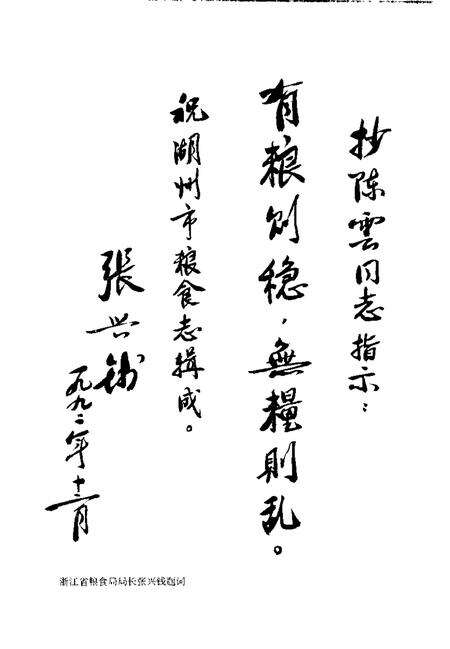 抄陈雲同志指示：
有粮则稳，無糧則乱。
祝湖州市粮食志揖成。
張兴钱
一九九二年十二月
浙江省粮食局局长张兴钱题词